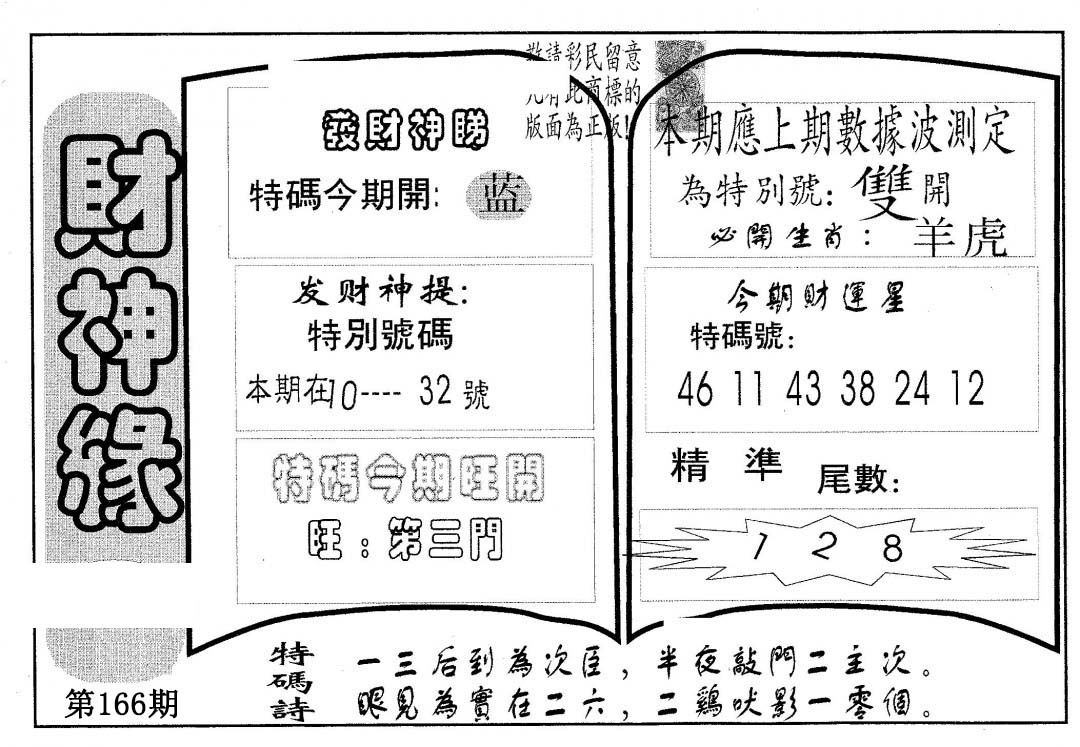 財神緣
第166期
敬請彩民留意
凡有此商標的
版面為正版!
發財神睇
特碼今期開: 蓝
发财神提:
特別號碼
本期在10---- 32 號
特碼今期旺開
旺:第三門
本期應上期數據波測定
為特別號: 雙 開
必開生肖: 羊虎
今期財運星
特碼號:
46 11 43 38 24 12
精 準 尾數:
1 2 8
特碼詩
一三后到為次臣,半夜敲門二主次。
眼見為實在二六,二鷄吠影一零個。